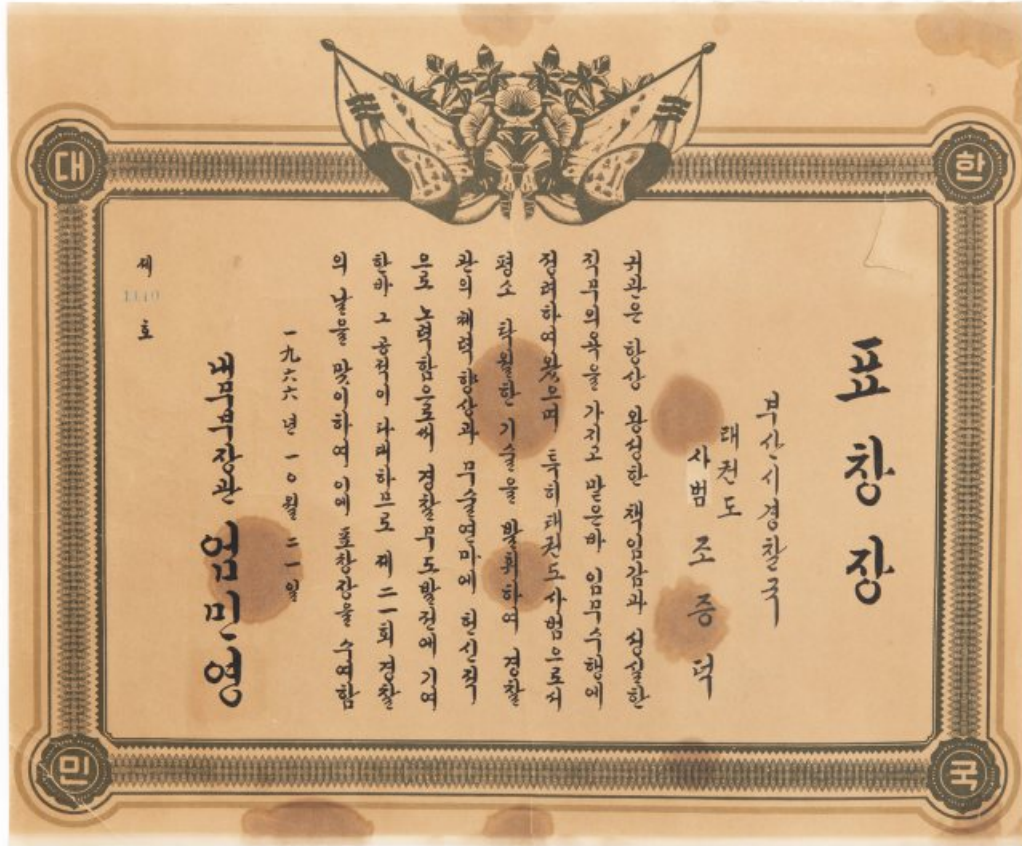 대 한
민 국
표창장
부산시경찰국
태권도
사범 조증덕
귀관은 항상 왕성한 책임감과 성실한
직무의욕을 가지고 맡은바 임무수행에
정려하여왔으며 특히 태권도 사범으로서
평소 탁월한 기술을 발휘하여 경찰
관의 체력향상과 무술연마에 헌신적
으로 노력함으로써 경찰무도발전에 기여
한바 그 공적이 다대하므로 제 二一회 경찰
의 날을 맞이하여 이에 표창장을 수여함
一九六六년 一〇월 二一일
내무부장관 엄민영
제 호